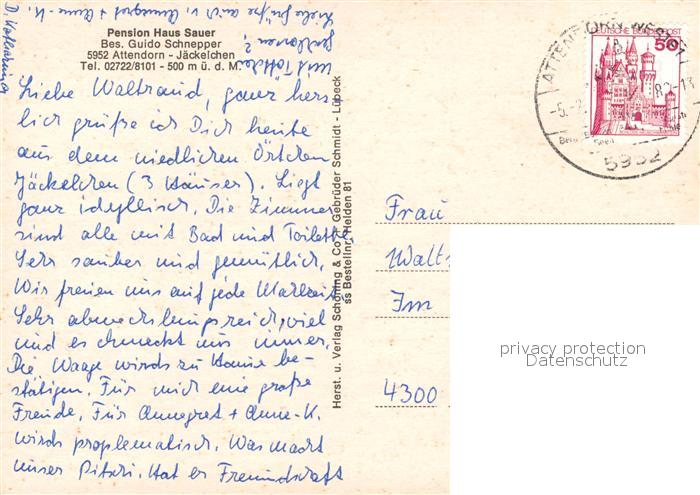 Pension Haus Sauer
Bes. Guido Schnepper
5952 Attendorn - Jäckelchen
Tel. 02722/8101 - 500 m ü. d. M.
Liebe Waltraud, ganz herz
lich grüße ich Dich heute
aus dem niedlichen Örtchen
Jäckelchen (3 Häuser). Liegt
ganz idyllisch. Die Zimmer
sind alle mit Bad und Toilette,
Sehr sauber und gemütlich.
Wir freuen uns auf jede Mahlzeit
Sehr abwechslungsreich, viel
und es schmeckt uns immer.
Die Waage wirds zu Hause be-
stätigen. Für mich eine große
Freude, Für Annegret + Anne-K.
wirds proplematisch. Was macht
unser Pitschi. Hat er Freundschaft
mit
geschlossen?
Liebe Grüße auch v. Annegret + Anne-K.
D. Katharina
Herst. u. Verlag Schöning & Co + Gebrüder Schmidt - Lübeck
ss Bestellnr. Helden 81
DEUTSCHE BUNDESPOST
50
ATTENDORN
5952
Frau
Im
4300
privacy protection
Datenschutz